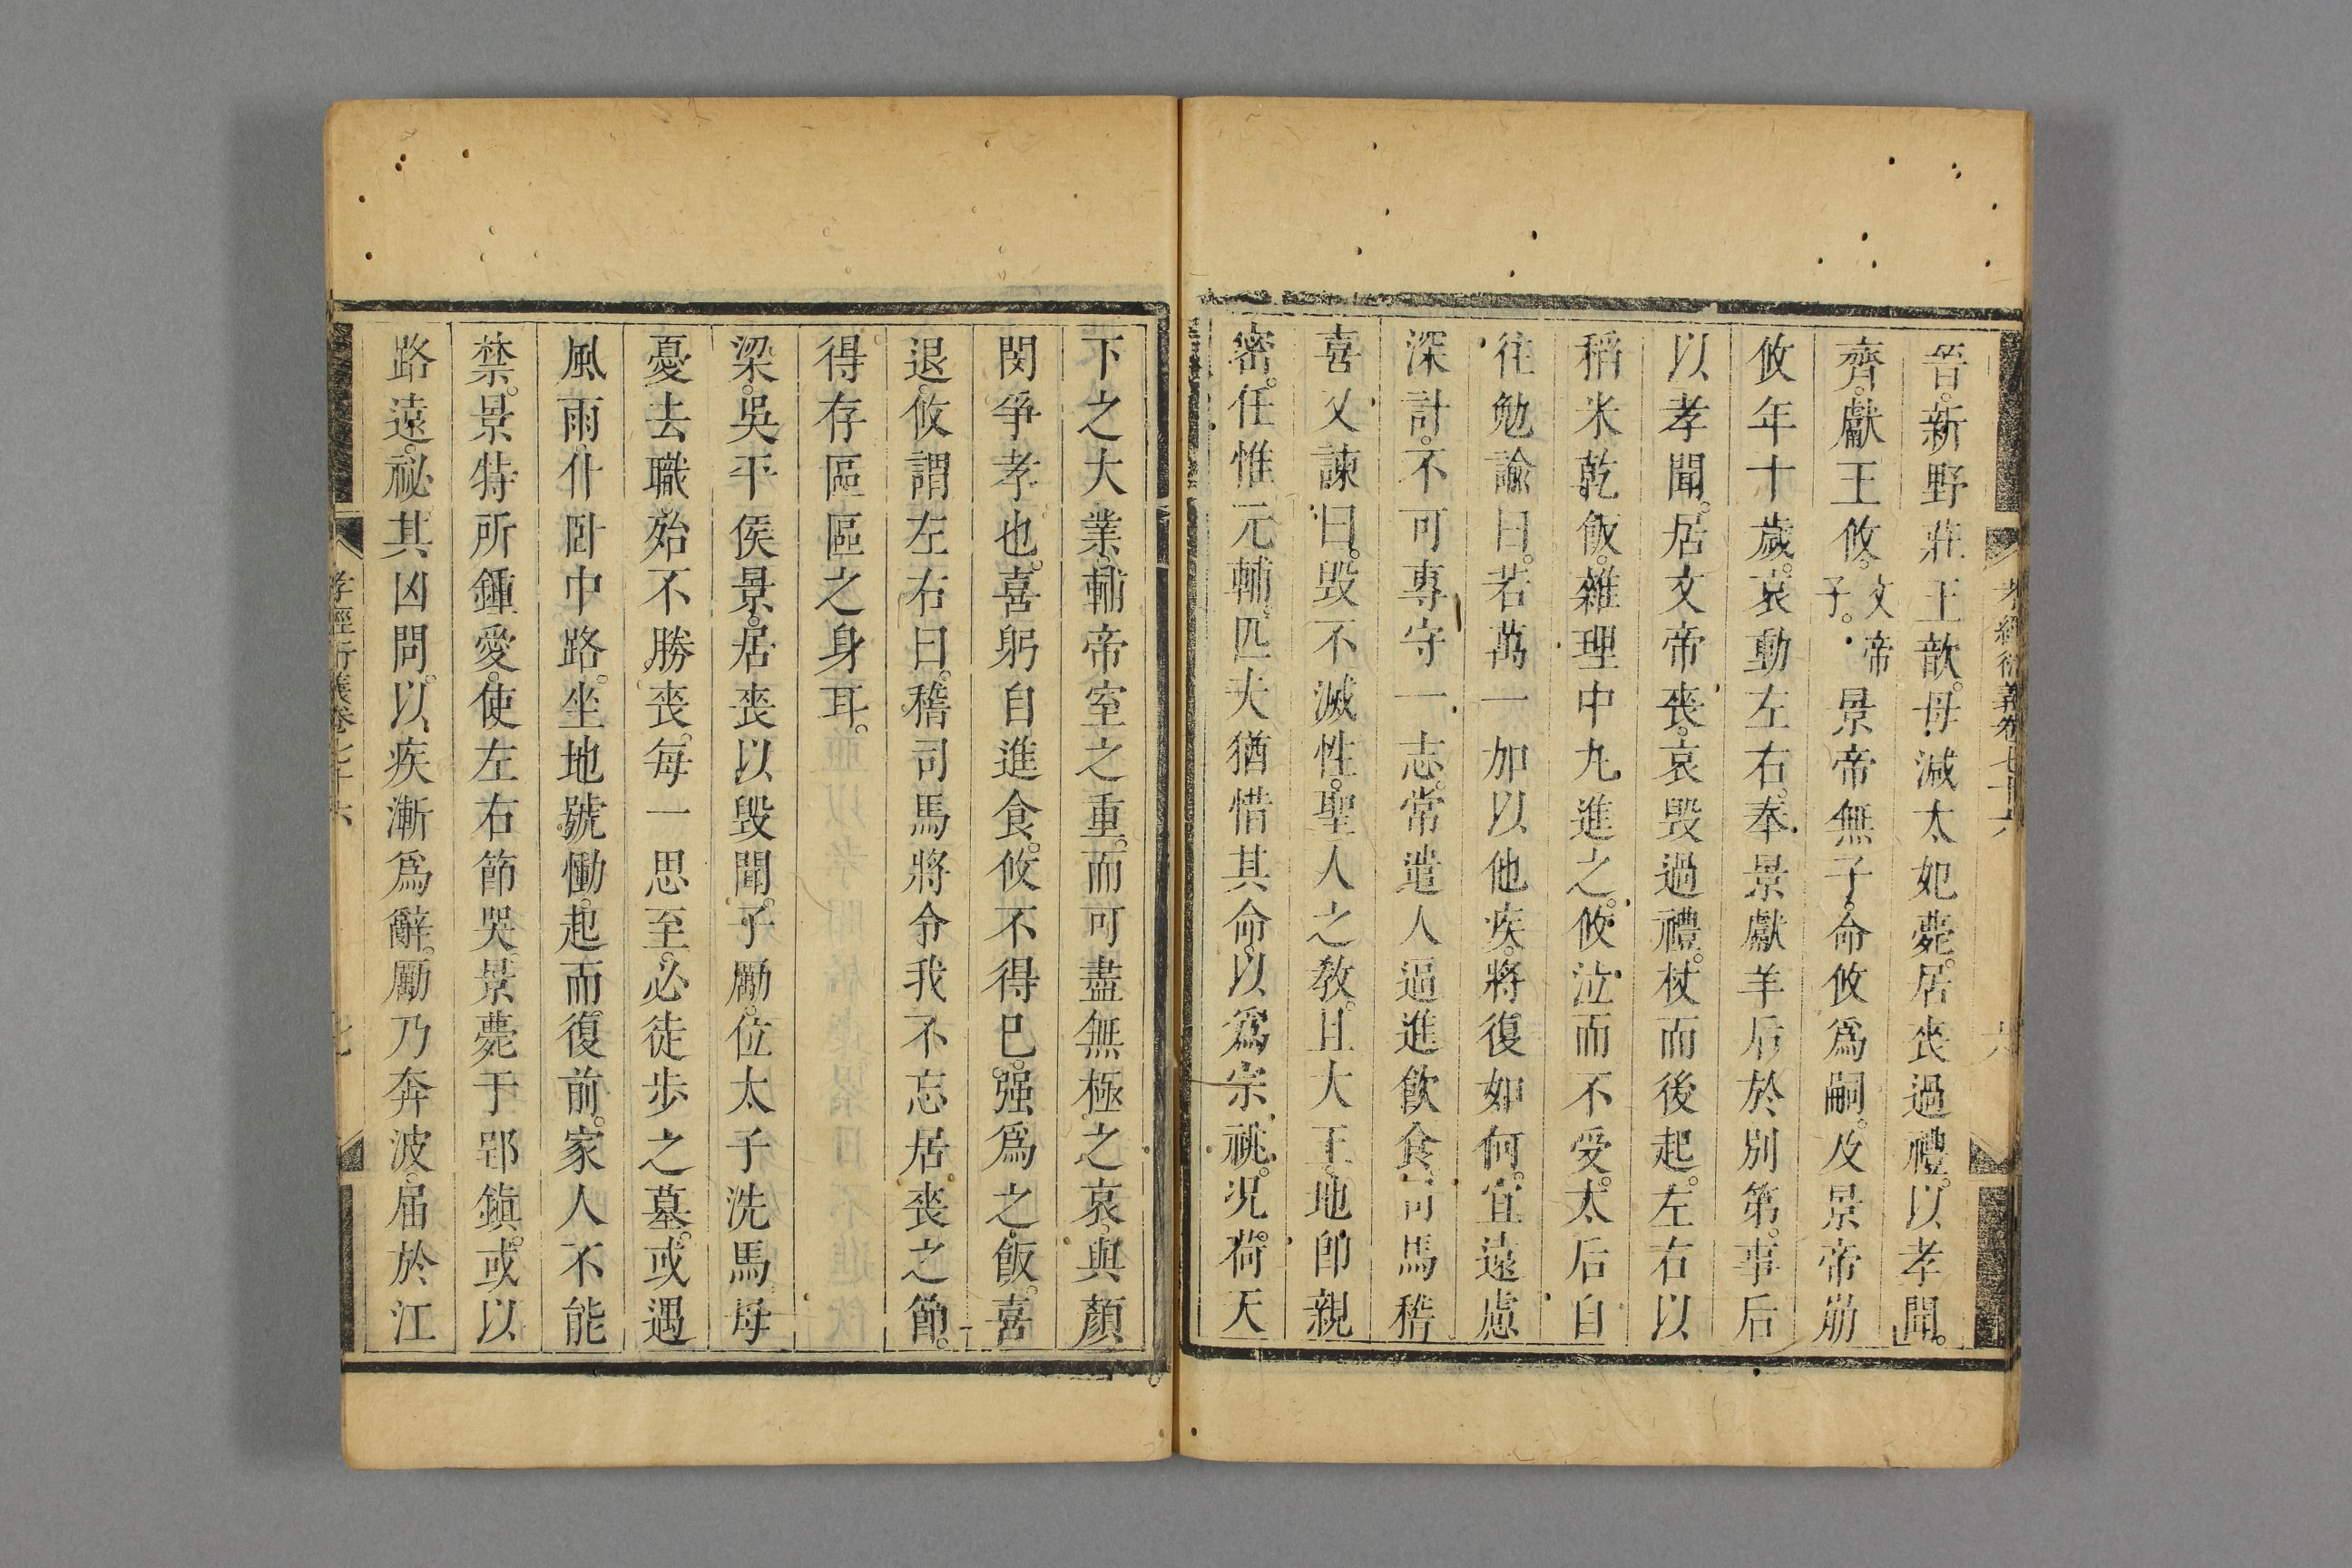 孝經衍義卷七十六 六
晉。新野莊王歆。母減太妃薨。居喪過禮。以孝聞。
齊。獻王攸。文帝子。景帝無子。命攸爲嗣。及景帝崩
攸年十歲。哀動左右。奉景獻羊后於別第。事后
以孝聞。居文帝喪。哀毀過禮。杖而後起。左右以
稻米乾飯。雜理中丸進之。攸泣而不受。太后自
往勉諭曰。若萬一加以他疾。將復如何。宜遠慮
深計。不可專守一志。常遣人逼進飲食。司馬嵇
喜又諫曰。毀不滅性。聖人之教。且大王。地卽親
密。任惟元輔。匹夫猶惜其命。以爲宗祧。况荷天
下之大業。輔帝室之重。而可盡無極之哀。與顏
閔爭孝也。喜躬自進食。攸不得已。强爲之飯。喜
退。攸謂左右曰。嵇司馬將令我不忘居喪之節。
得存區區之身耳。
梁。吳平侯景。居喪以毀聞。子勵。位太子洗馬。母
憂去職。殆不勝喪。每一思至。必徒步之墓。或遇
風雨。仆卧中路。坐地號慟。起而復前。家人不能
禁。景特所鍾愛。使左右節哭。景薨于郢鎮。或以
路遠。祕其凶問。以疾漸爲辭。勵乃奔波。届於江
孝經衍義卷七十六 七